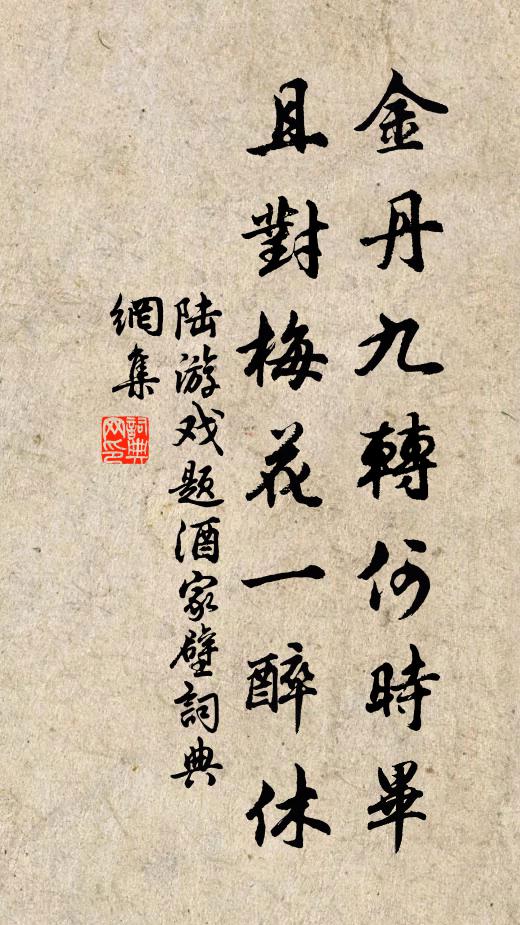 金丹九轉何時畢
且對梅花一醉休
陆游戏题酒家壁詞典
網集
詞典
网印